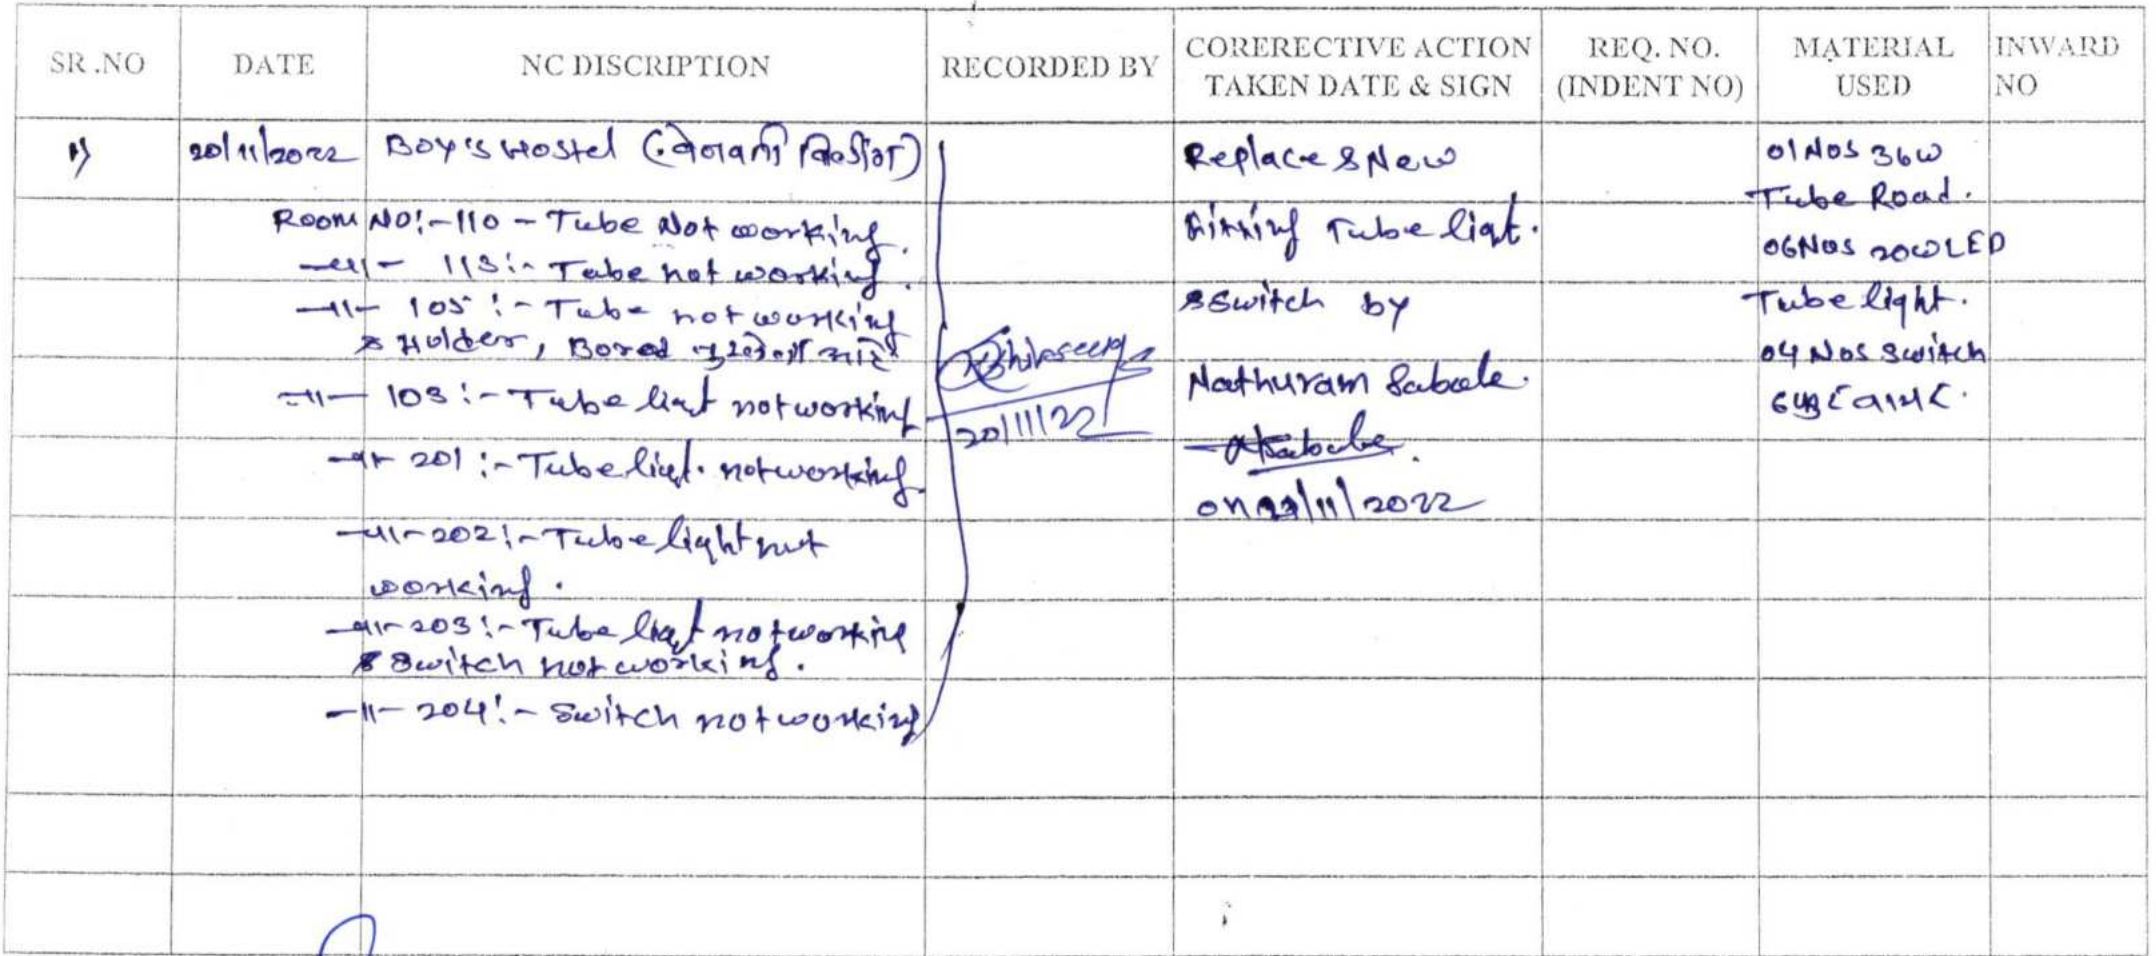 SR.NO DATE NC DISCRIPTION RECORDED BY CORERECTIVE ACTION TAKEN DATE & SIGN REQ. NO. (INDENT NO) MATERIAL USED INWARD NO
1) 20/11/2022 Boy's Hostel (
Room No:-110 - Tube Not working.
-11- 113:- Tube not working.
-11- 105:- Tube not working
& Holder, Bored
-11- 103:- Tube liqt not working
-11- 201:- Tube liqt. not working.
-11- 202:- Tube light not
working.
-11- 203:- Tube liqt not working
& Switch not working.
-11- 204:- Switch not working
20/11/22
Replace & New
Fitting Tube liqt.
& Switch by
Nathuram Sabale.
on /11/2022
01 Nos 36W
Tube Road.
06 Nos 20W LED
Tube light.
04 Nos Switch